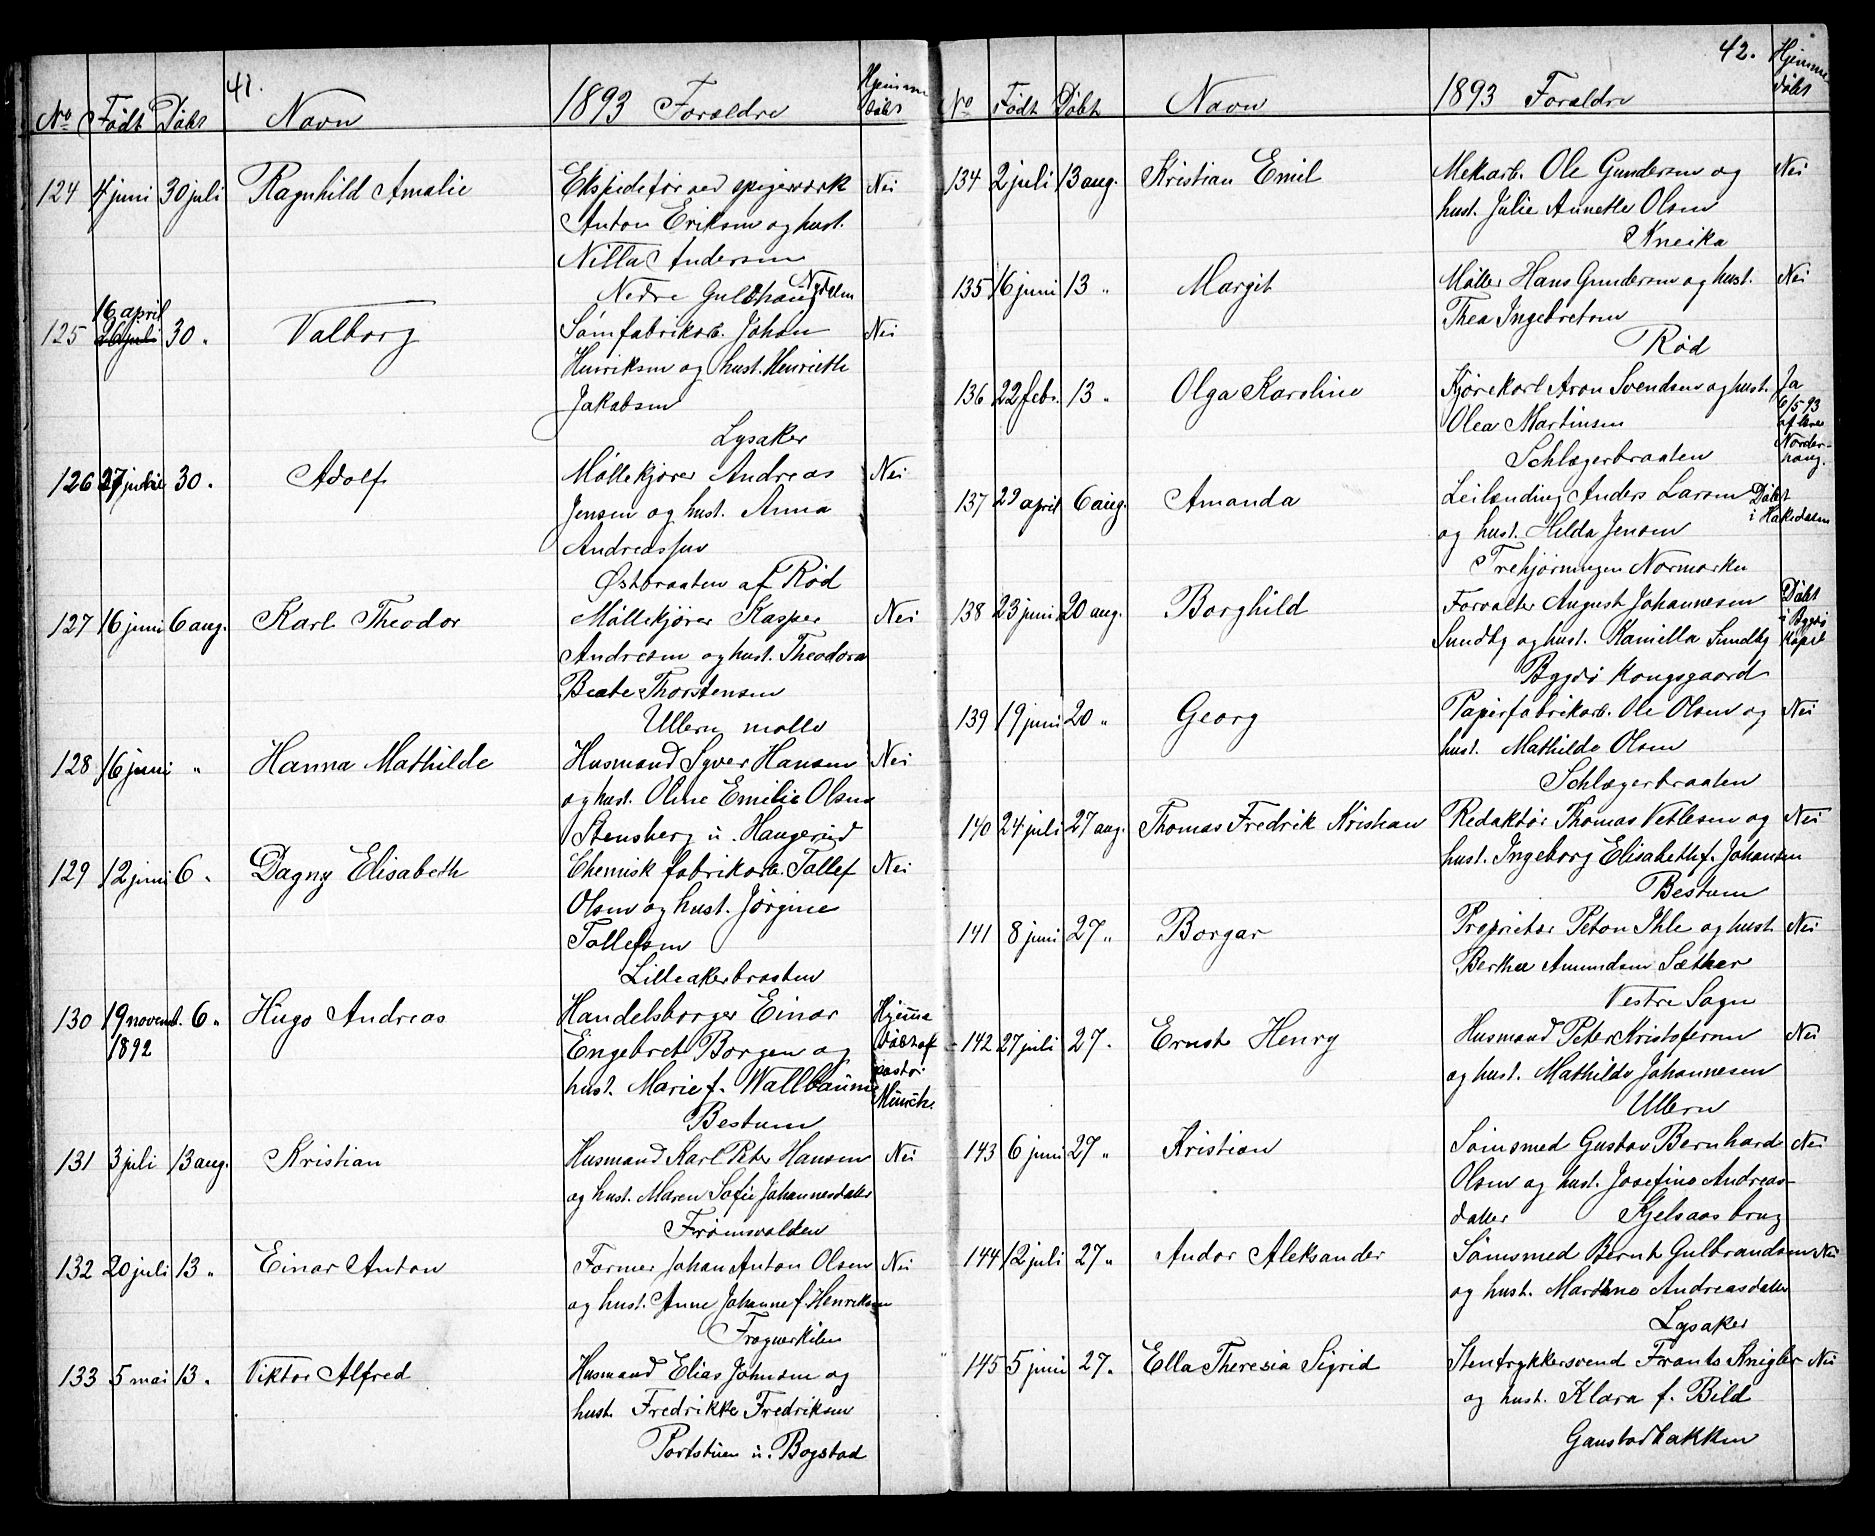 41.
No Født Døbt Navn 1893 Forældre Hjemme døbt
124 4 juni 30 juli Ragnhild Amalie Ekspeditør ved spigerværk Nei
Anton Eriksen og hust.
Nilla Andersen
Nedre Guldhaug Nydalen
125 16 april 26 juli 30 " Valborg Sømfabrikarb. Johan Nei
Henriksen og hust. Henriette
Jakobsen
Lysaker
126 27 juni 30 " Adolf Møllekjører Andreas Nei
Jensen og hust. Anna
Andreassen
Østbraaten af Rød
127 16 juni 6 aug. Karl Theodor Møllekjører Kasper Nei
Andresen og hust. Theodora
Beate Thorstensen
Ullern mølle
128 16 juni " Hanna Mathilde Husmand Syver Hansen Nei
og hust. Oline Emilie Olsen
Stensberg u. Haugerud
129 12 juni 6 " Dagny Elisabeth Chemisk fabrikarb. Tollef Nei
Olsen og hust. Jørgine
Tollefsen
Lilleakerbraaten
130 19 novemb. 1892 6 " Hugo Andreas Handelsborger Einar Hjemme
Engebret Borgen og døbt af
hust. Marie f. Wallbaum pastor
Bestum Münster
131 3 juli 13 aug. Kristian Husmand Karl Peter Hansen Nei
og hust. Maren Sofie Johannesdatter
Frømsvolden
132 20 juli 13 " Einar Anton Former Johan Anton Olsen Nei
og hust. Anne Johanne f. Henriksen
Frognerkilen
133 5 mai 13 " Viktor Alfred Husmand Elias Johnsen og
hust. Fredrikke Fredriksen
Portstuen u. Bogstad
42.
No Født Døbt Navn 1893 Forældre Hjemme døbt
134 2 juli 13 aug. Kristian Emil Mek. arb. Ole Gundersen og Nei
hust. Julie Annette Olsen
Kneika
135 16 juni 13 " Margit Møller Hans Gundersen og hust. Nei
Thea Ingebretsen
Rød
136 22 febr. 13 " Olga Karoline Kjørekarl Aron Svendsen og hust. Ja
Olea Martinsen 6/5 93
Schlægerbraaten Norderhaug.
137 29 april 6 aug. Amanda Leilænding Anders Larsen Døbt
og hust. Hilda Jensen i Hakedalen
Trehjørningen Normarka
138 23 juni 20 aug. Borghild Forvalter August Johannesen Døbt
Sundby og hust. Kamilla Sundby i Bygdø kapel
Bygdø Kongsgaard
139 19 juni 20 " Georg Papirfabrikarb. Ole Olsen og Nei
hust. Mathilde Olsen
Schlægerbraaten
140 24 juli 27 aug. Thomas Fredrik Kristian Redaktør Thomas Vetlesen og Nei
hust. Ingeborg Elisabeth f. Johansen
Bestum
141 8 juni 27 " Borgar Proprietær Peton Ihle og hust. Nei
Berthe Amundsen Sæther
Vestre Sogn
142 27 juli 27 " Ernst Henry Husmand Peter Kristofersen Nei
og hust. Mathilde Johannesen
Ullern
143 6 juni 27 " Kristian Sømsmed Gustav Bernhard Nei
Olsen og hust. Josefine Andreas-
datter Kjelsaas brug
144 12 juli 27 " Andor Aleksander Sømsmed Bernt Gulbrandsen Nei
og hust. Marthine Andreasdatter
Lysaker
145 5 juni 27 " Ella Theresia Sigrid Stentrykkersvend Frants Knigler Nei
og hust. Klara f. Bild
Gaustadbakken